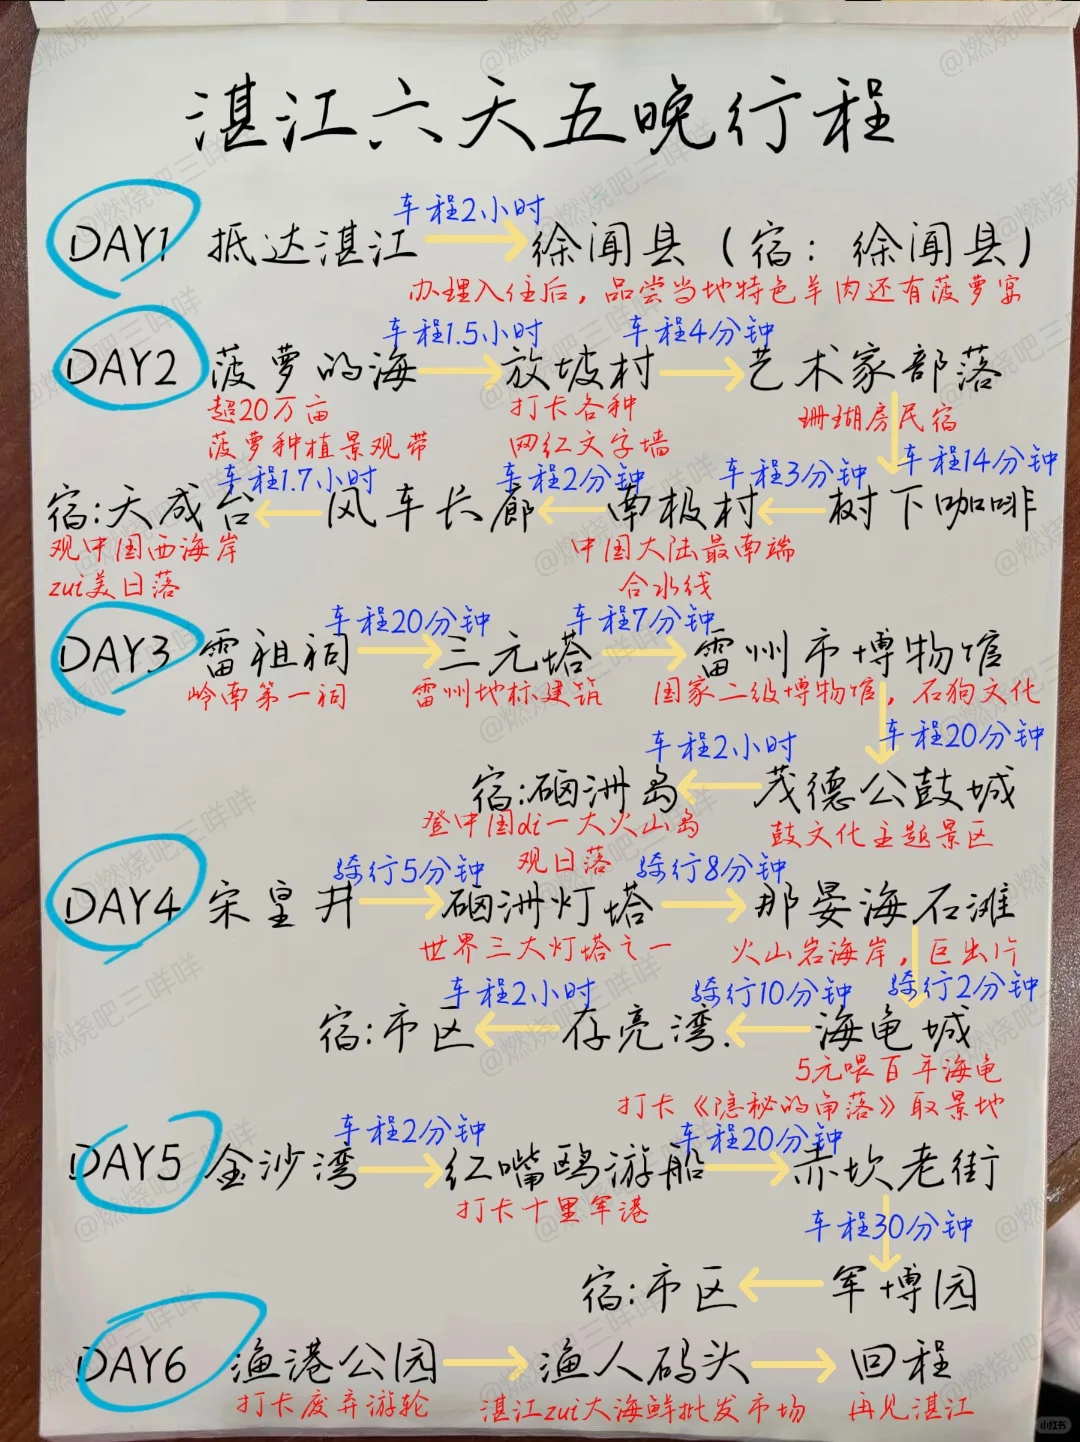 湛江六天五晚行程
车程2小时
DAY1 抵达湛江 徐闻县（宿：徐闻县）
办理入住后，品尝当地特色羊肉还有菠萝宴
车程1.5小时 车程4分钟
DAY2 菠萝的海 放坡村 艺术家部落
超20万亩 打卡各种 珊瑚房民宿
菠萝种植景观带 网红文字墙
车程1.7小时 车程2分钟 车程3分钟 车程14分钟
宿:天成台 风车长廊 南极村 树下咖啡
观中国西海岸 中国大陆最南端
zui美日落 合水线
车程20分钟 车程7分钟
DAY3 雷祖祠 三元塔 雷州市博物馆
岭南第一祠 雷州地标建筑 国家二级博物馆，石狗文化
车程2小时 车程20分钟
宿:硇洲岛 茂德公鼓城
登中国di一大火山岛 鼓文化主题景区
观日落
骑行5分钟 骑行8分钟
DAY4 宋皇井 硇洲灯塔 那晏海石滩
世界三大灯塔之一 火山岩海岸，巨出片
车程2小时 骑行10分钟 骑行2分钟
宿:市区 存亮湾 海龟城
5元喂百年海龟
打卡《隐秘的角落》取景地
车程2分钟 车程20分钟
DAY5 金沙湾 红嘴鸥游船 赤坎老街
打卡十里军港
车程30分钟
宿:市区 军博园
DAY6 渔港公园 渔人码头 回程
打卡废弃游轮 湛江zui大海鲜批发市场 再见湛江
@燃烧吧三咩咩
小红书